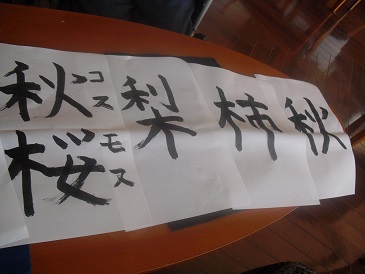 秋
柿
梨
秋桜
コスモス